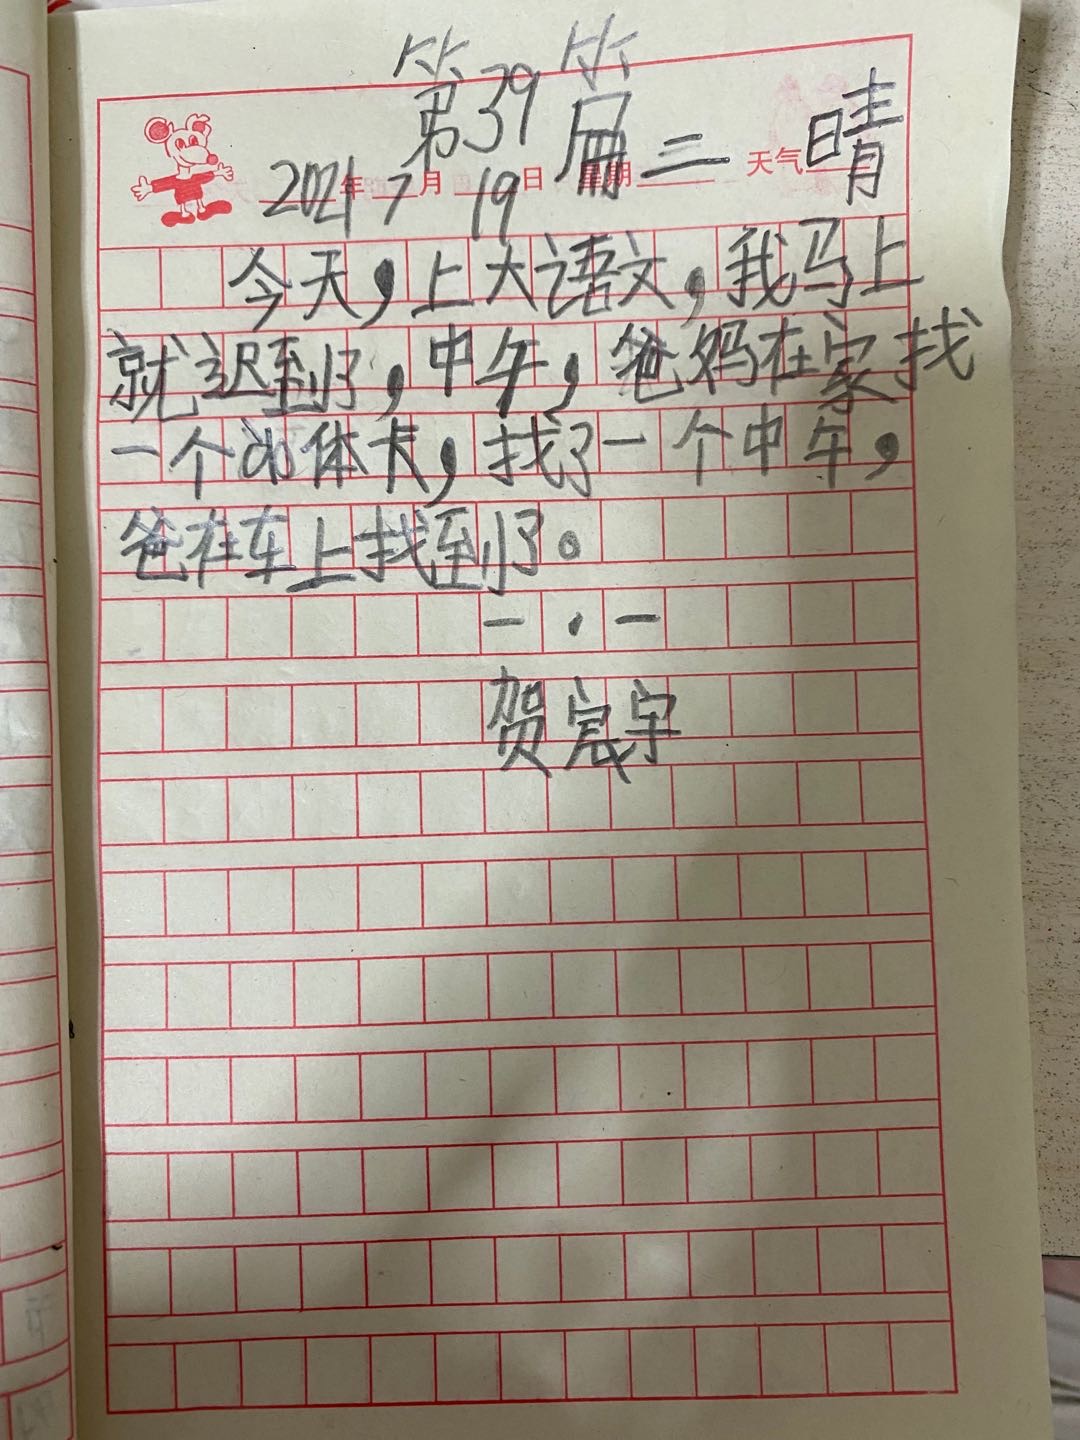 第39篇
2021年7月19日 星期三 天气晴
今天,上大语文,我马上
就迟到了,中午,爸妈在家找
一个 体卡,找了一个中午,
爸在车上找到了。
一·一
贺宸宇